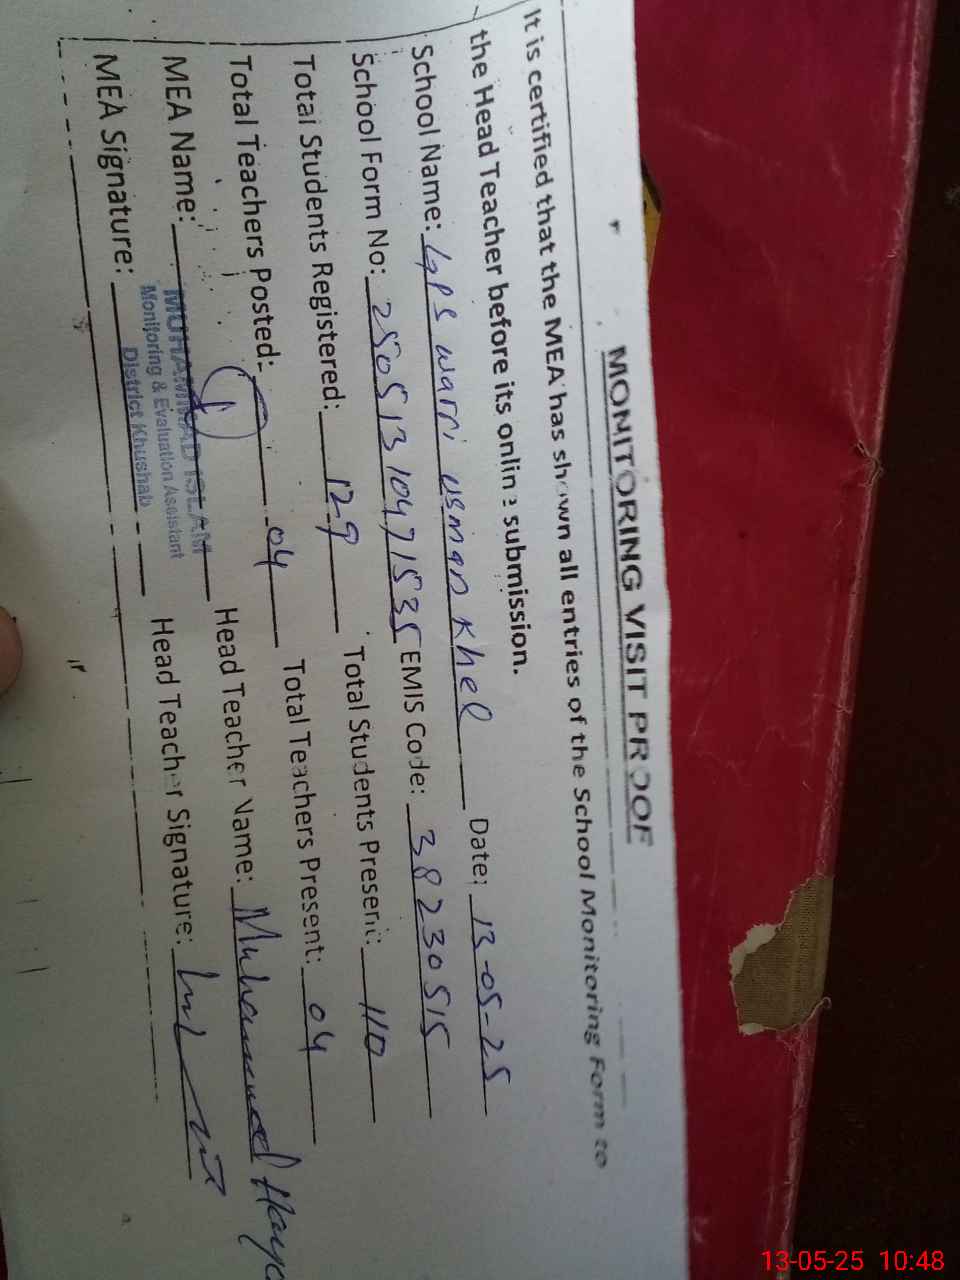 MONITORING VISIT PROOF
It is certified that the MEA has shown all entries of the School Monitoring Form to
the Head Teacher before its online submission.
School Name: Gps warri usman khel Date: 13-05-25
School Form No: 25051310471535 EMIS Code: 38230515
Total Students Registered: 129 Total Students Present: 110
Total Teachers Posted: 04 Total Teachers Present: 04
MEA Name: MUHAMMAD ISLAM Head Teacher Name: Muhammad Haya
Monitoring & Evaluation Assistant
District Khushab
MEA Signature: Head Teacher Signature:
13-05-25 10:48